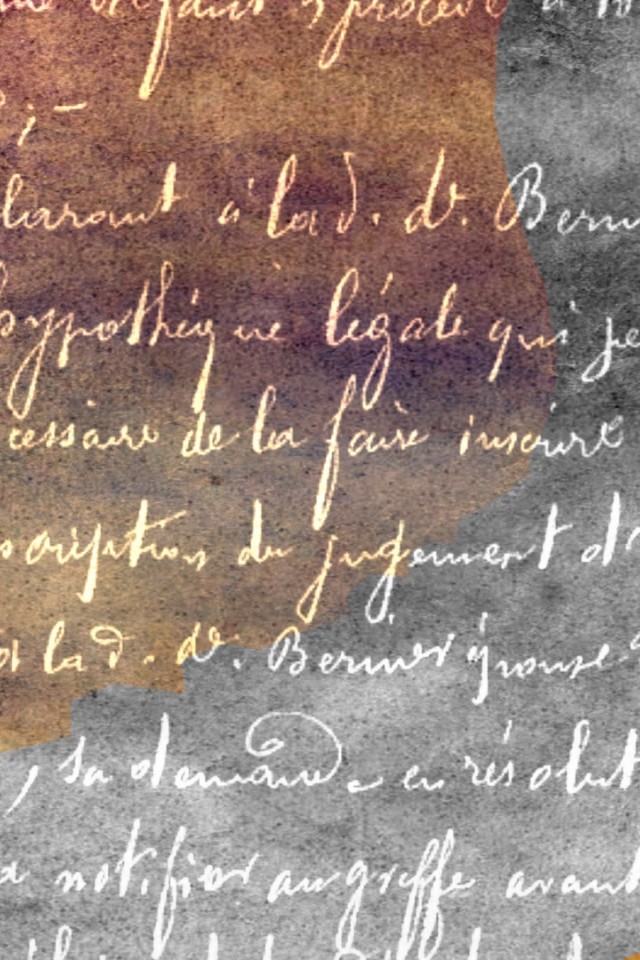 procéde à
clarant à la d. dᵉ. Bern
hypothèque légale qui pe
cessaire de la faire inscrire
scription du jugement d
à la d. dᵉ. Bernier épouse
, sa demande en résolut
a notifier au greffe avant